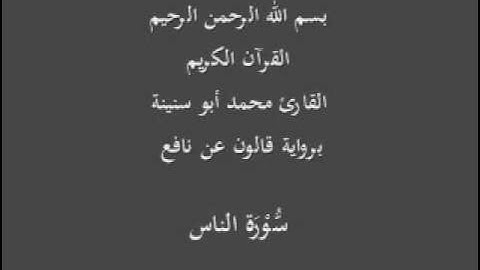 بسم الله الرحمن الرحيم
القرآن الكريم
القارئ محمد أبو سنينة
برواية قالون عن نافع
سُّوْرَة الناس